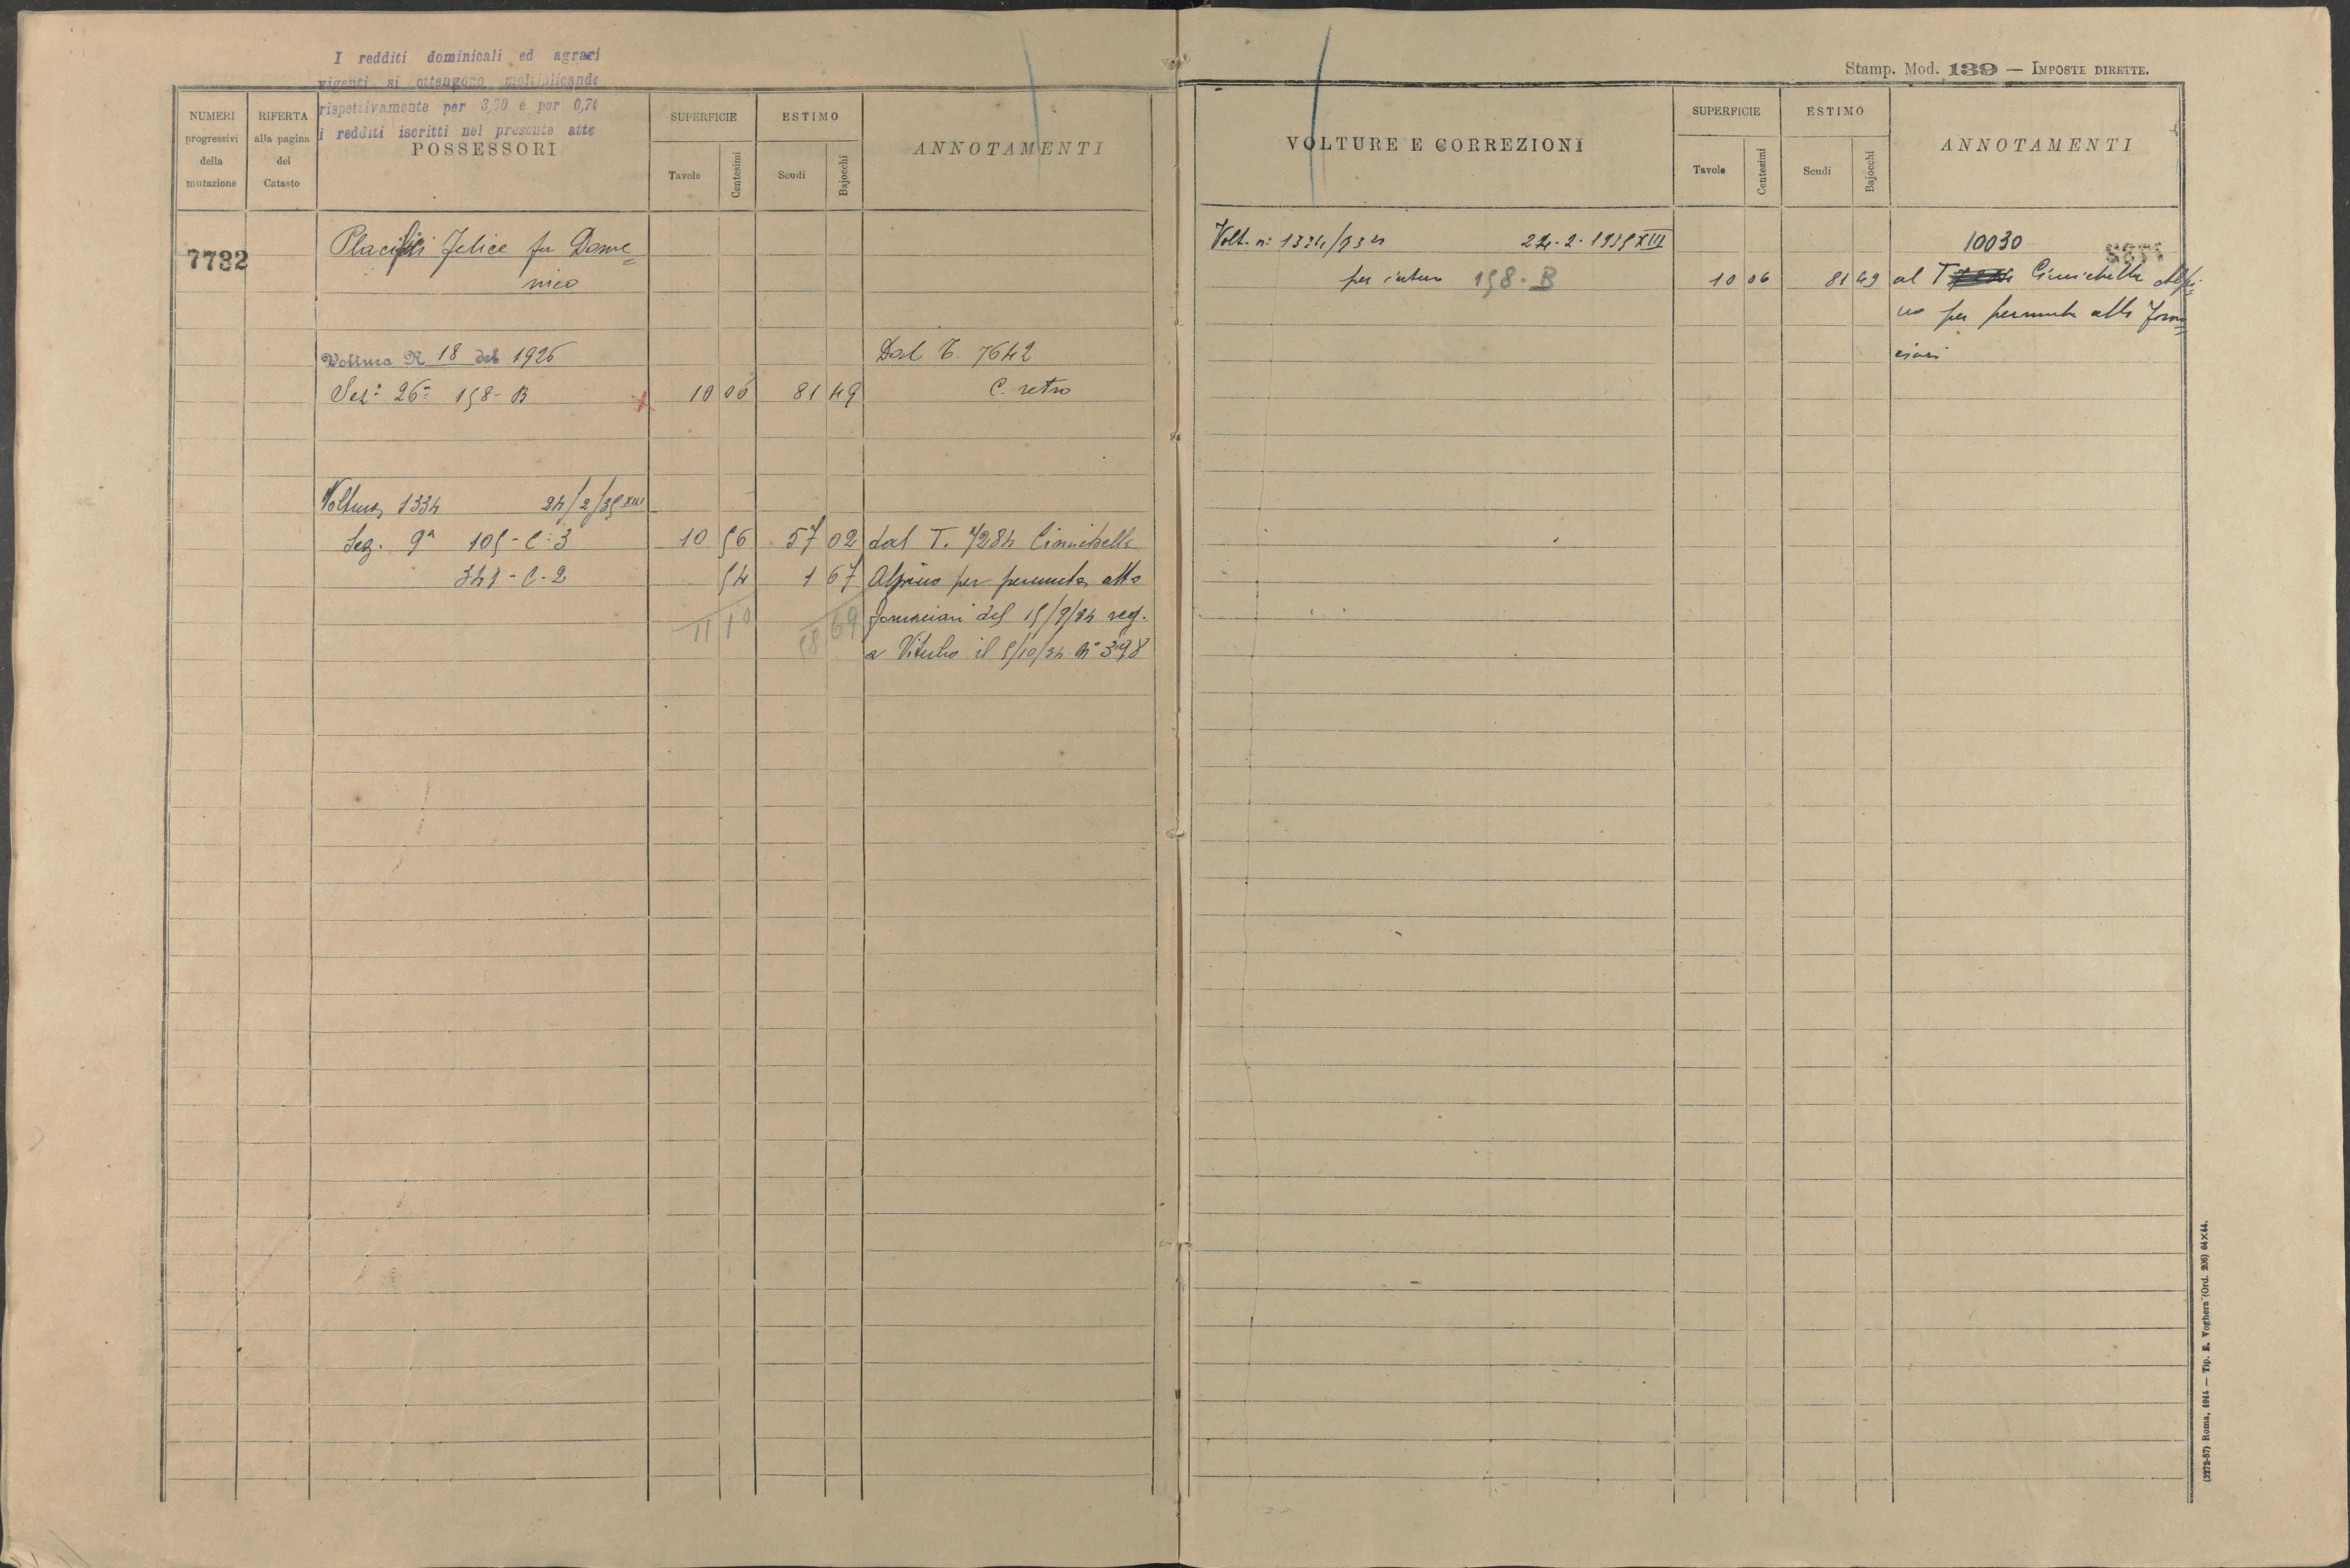 I redditi dominicali ed agrari
vigenti si ottengono moltiplicando
rispettivamente per 3,20 e per 0,70
i redditi iscritti nel presente atto
NUMERI progressivi della mutazione
RIFERTA alla pagina del Catasto
POSSESSORI
SUPERFICIE
Tavole
Centesimi
ESTIMO
Scudi
Bajocchi
ANNOTAMENTI
7782
Felice fu Dome=
nico
Voltura N 18 del 1926
Dal T. 7642
Sez.e 26a 158 - B
10 06
81 49
C. retro
Voltura 1334 24/2/35 XIII
Sez. 9a 105 - C - 3
10 56
57 02
dal T. 7284 Cimichella
341 - C - 2
54
1 67
Alpino per permuta atto
11 10
58 69
del 15/9/34 reg.
a Viterbo il 5/10/34 N° 398
Stamp. Mod. 139 — IMPOSTE DIRETTE.
VOLTURE E CORREZIONI
SUPERFICIE
Tavole
Centesimi
ESTIMO
Scudi
Bajocchi
ANNOTAMENTI
Volt. n: 1334/934 24-2-1935 XIII
10030
per intero 158 - B
10 06
81 49
al T Cimichella Alpi=
no per permuta atto Forna=
ciari
(3272-57) Roma, 1914 — Tip. E. Voghera (Ord. 206) 64×44.